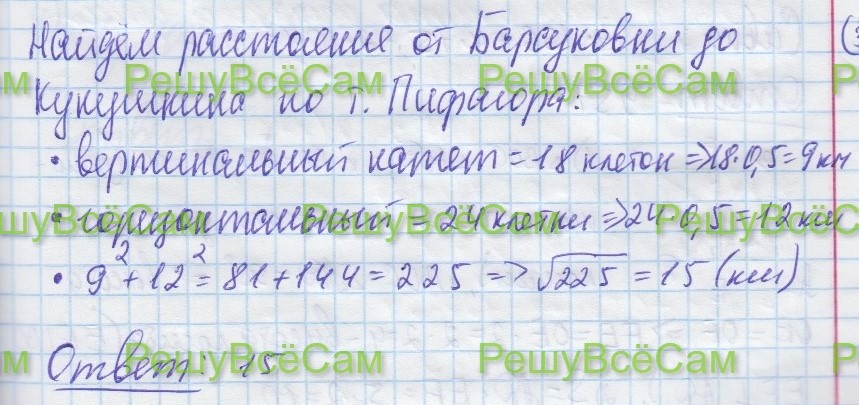 Найдём расстояние от Барсуковки до
(3
Кукушкина по т. Пифагора:
• вертикальный катет = 18 клеток => 18·0,5 = 9 км
• горизонтальный = 24 клетки => 24·0,5 = 12 км
• 9² + 12² = 81 + 144 = 225 => √225 = 15 (км)
Ответ: 15
РешуВсёСам
РешуВсёСам
РешуВсёСам
РешуВсёСам
РешуВсёСам
РешуВсёСам